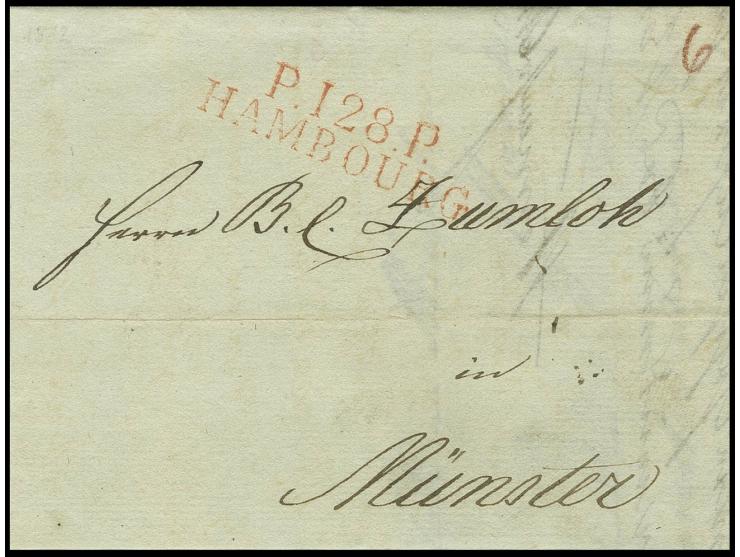 1812
6
P.128.P.
HAMBOURG
Herrn B. C. Zumloh
in
Münster